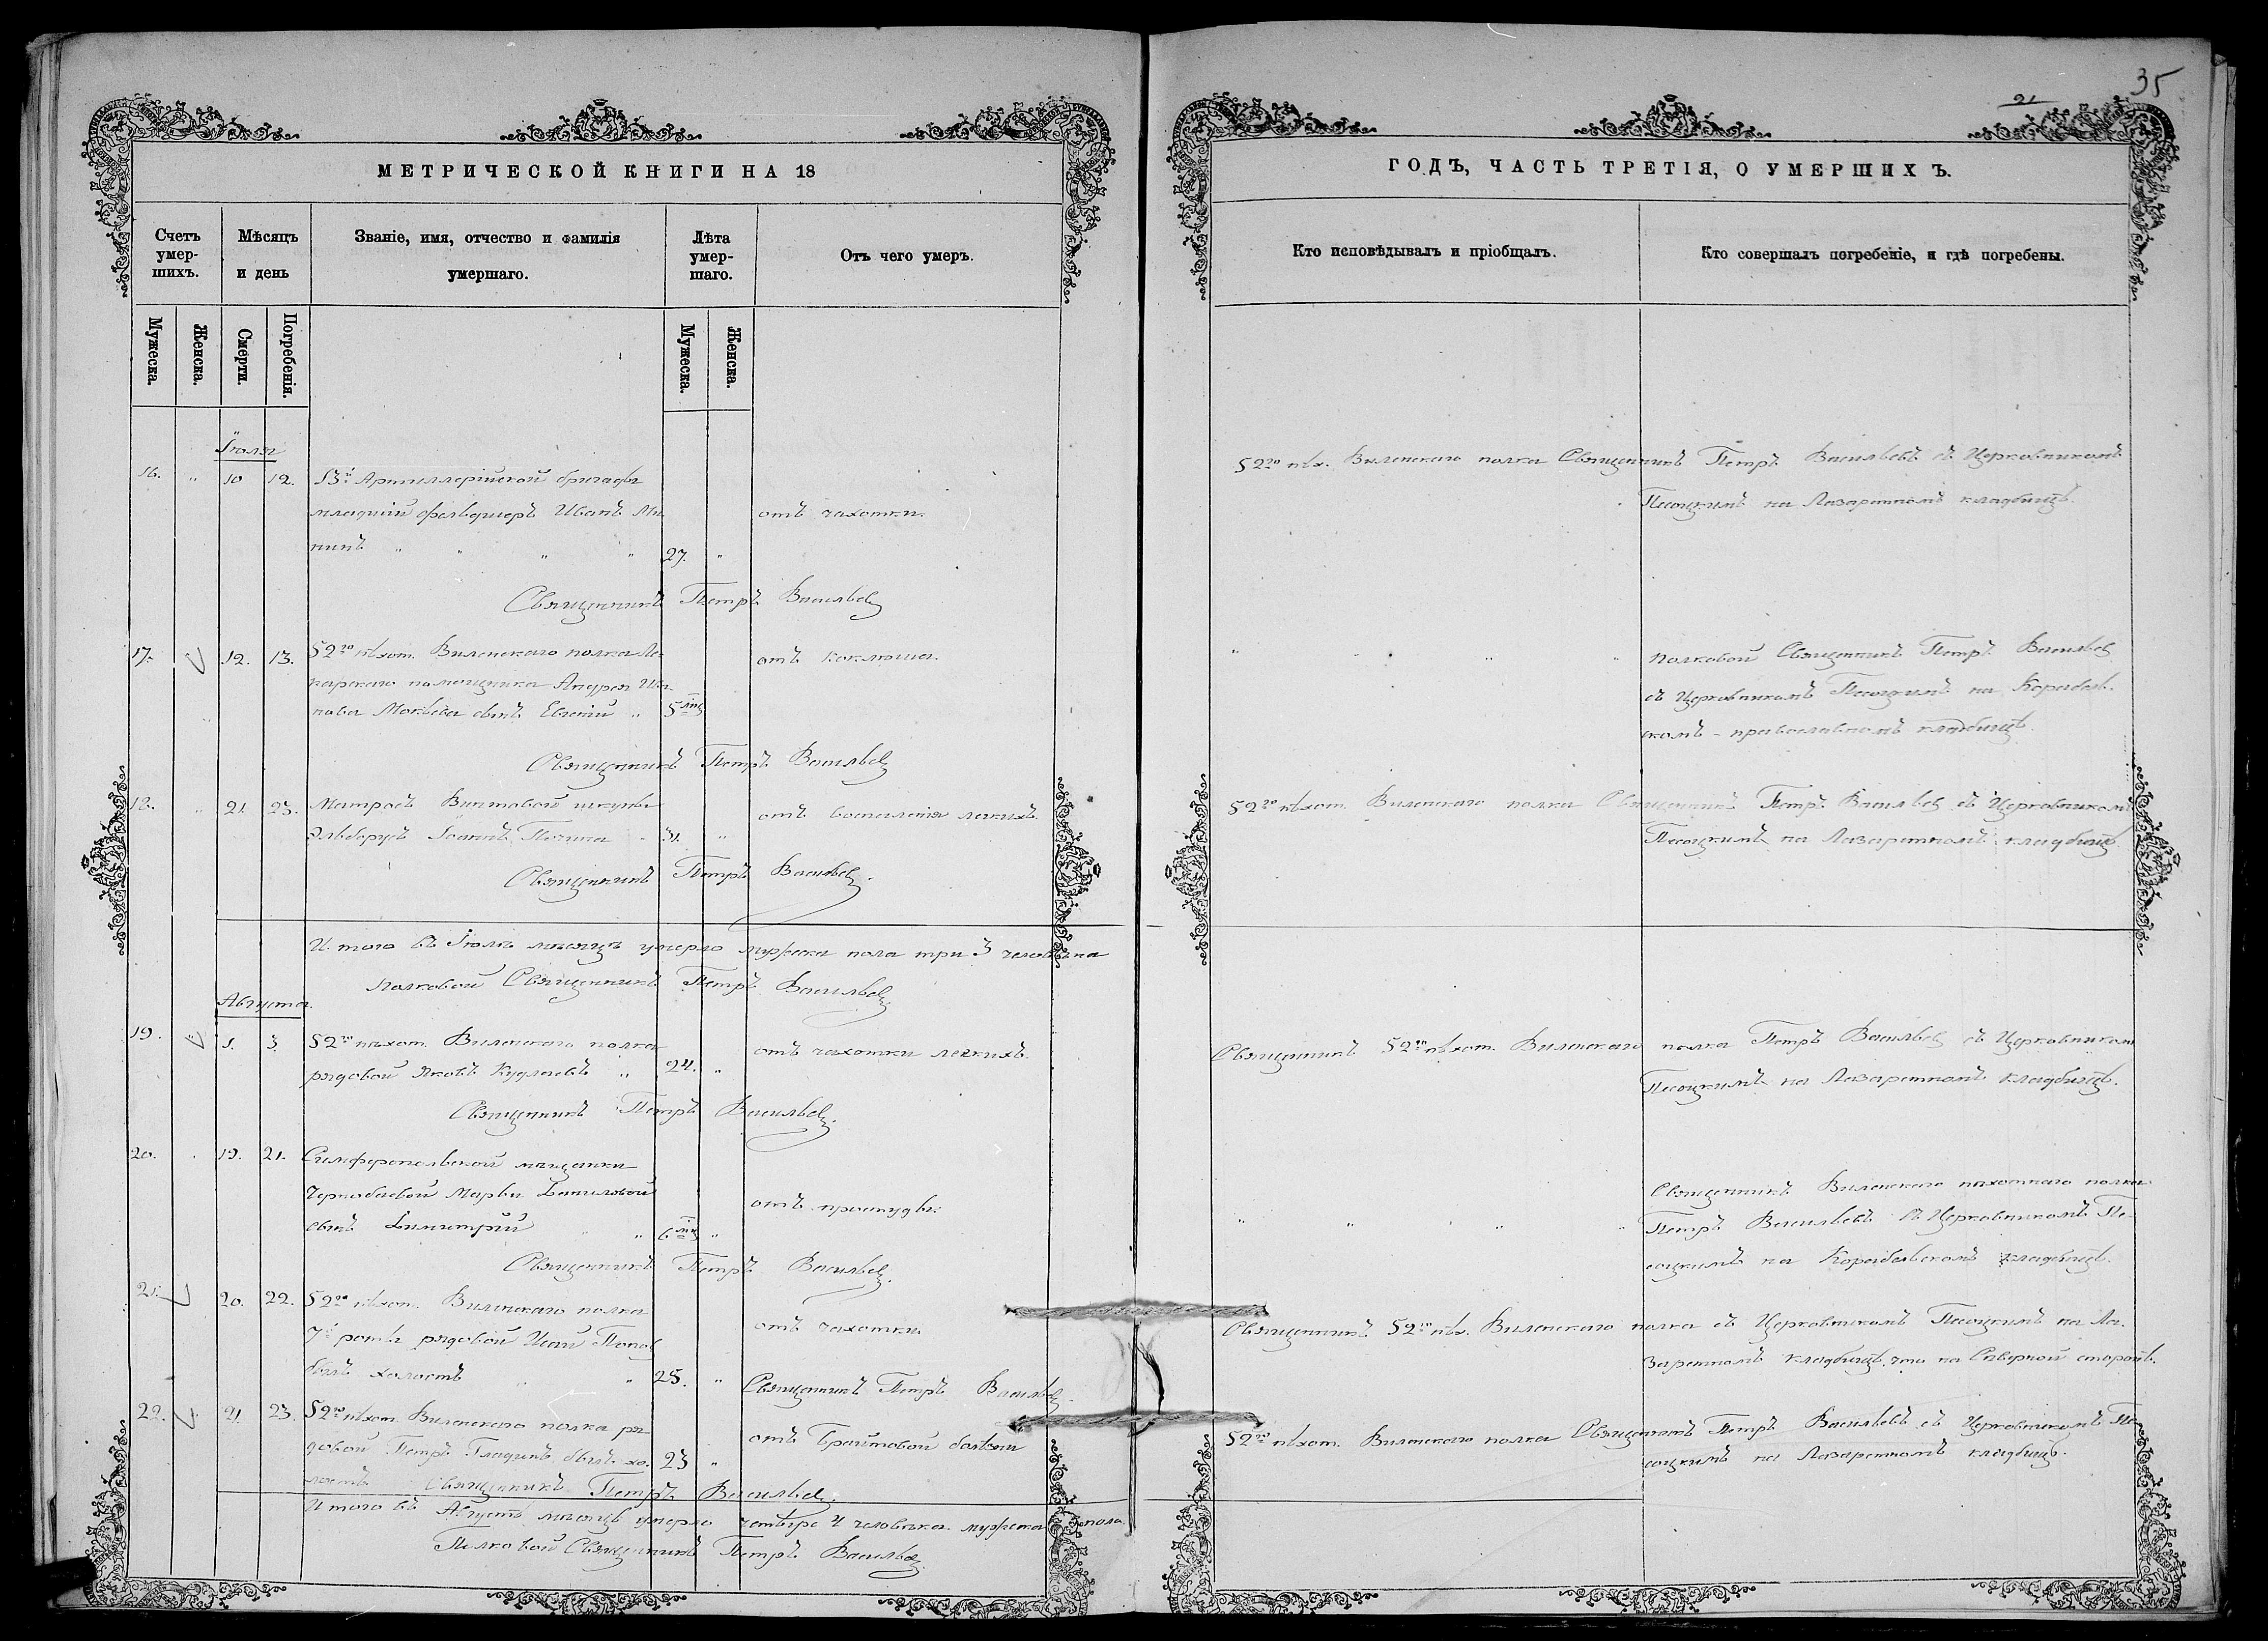 35
21
МЕТРИЧЕСКОЙ КНИГИ НА 18
Счетъ умер-шихъ.
Мѣсяцъ и день
Званіе, имя, отчество и фамилія умершаго.
Лѣта умер-шаго.
Отъ чего умеръ.
Мужеска.
Женска.
Смерти.
Погребенія.
Мужеска.
Женска.
Іюля
16. " 10 12. 13й Артиллерійской бригады
младшій фельдшеръ Иванъ Ми отъ чахотки.
нинъ " " " " 27. "
Священникъ Петръ Васильев
17. 12. 13. 52го пѣхот. Виленскаго полка Ле- отъ коклюша.
карскаго помощника Андрея Ива
нова Мокѣева сынъ Евгеній " 5 мѣс
Священникъ Петръ Васильев
18. " 21. 23. Матросъ Винтовой шкуны отъ воспаленія легкихъ.
Эльборусъ Іоаннъ " 31. "
Священникъ Петръ Васильев.
И того въ Іюлѣ мѣсяцѣ умерло мужеска пола три 3 человѣка
Полковой Священникъ Петръ Васильев.
Августа.
19. " 1. 3. 52го пѣхот. Виленскаго полка отъ чахотки легкихъ.
рядовой Яковъ " 24. "
Священникъ Петръ Васильев.
20. . 19. 21. Симферопольской мѣщанки
Марѳы Даниловой отъ простуды.
сынъ Димитрій " 6 мѣс "
Священникъ Петръ Васильев.
21. 20. 22. 52го пѣхот. Виленскаго полка
7й роты рядовой Исай Попов отъ чахотки.
былъ холостъ " " 25. " Священникъ Петръ Васильев
22. 21. 23. 52го пѣхот. Виленскаго полка ря-
довой Петръ Гладинъ былъ хо- 23 " отъ Брайтовой болѣзни
лостъ Священникъ Петръ Васильев.
И того въ Августѣ мѣсяцѣ умерло четыре 4 человѣка мужеска пола.
Полковой Священникъ Петръ Васильев
ГОДЪ, ЧАСТЬ ТРЕТІЯ, О УМЕРШИХЪ.
Кто исповѣдывалъ и пріобщалъ.
Кто совершалъ погребеніе, и гдѣ погребены.
52го пѣх. Виленскаго полка Священникъ Петръ Васильевъ съ Церковникомъ
Песоцкимъ на Лазаретномъ кладбищѣ.
" " " " Полковой Священникъ Петръ Васильев
съ Церковникомъ Песоцкимъ на Корабель-
скомъ - православномъ кладбищѣ.
52го пѣхот. Виленскаго полка Священникъ Петръ Васильев съ Церковникомъ
Песоцкимъ на Лазаретномъ кладбищѣ
Священникъ 52го пѣхот. Виленскаго полка Петръ Васильев съ Церковником
Песоцкимъ на Лазаретномъ кладбищѣ.
Священникъ Виленскаго пѣхотнаго полка
" " " " Петръ Васильевъ съ Церковникомъ Пе-
соцкимъ на Корабельскомъ кладбищѣ.
Священникъ 52го пѣх. Виленскаго полка съ Церковникомъ Песоцкимъ на Ла-
заретномъ кладбищѣ, что на Сѣверной сторонѣ.
52го пѣхот. Виленскаго полка Священникъ Петръ Васильевъ съ Церковникомъ Пе-
соцкимъ на Лазаретномъ кладбищѣ.